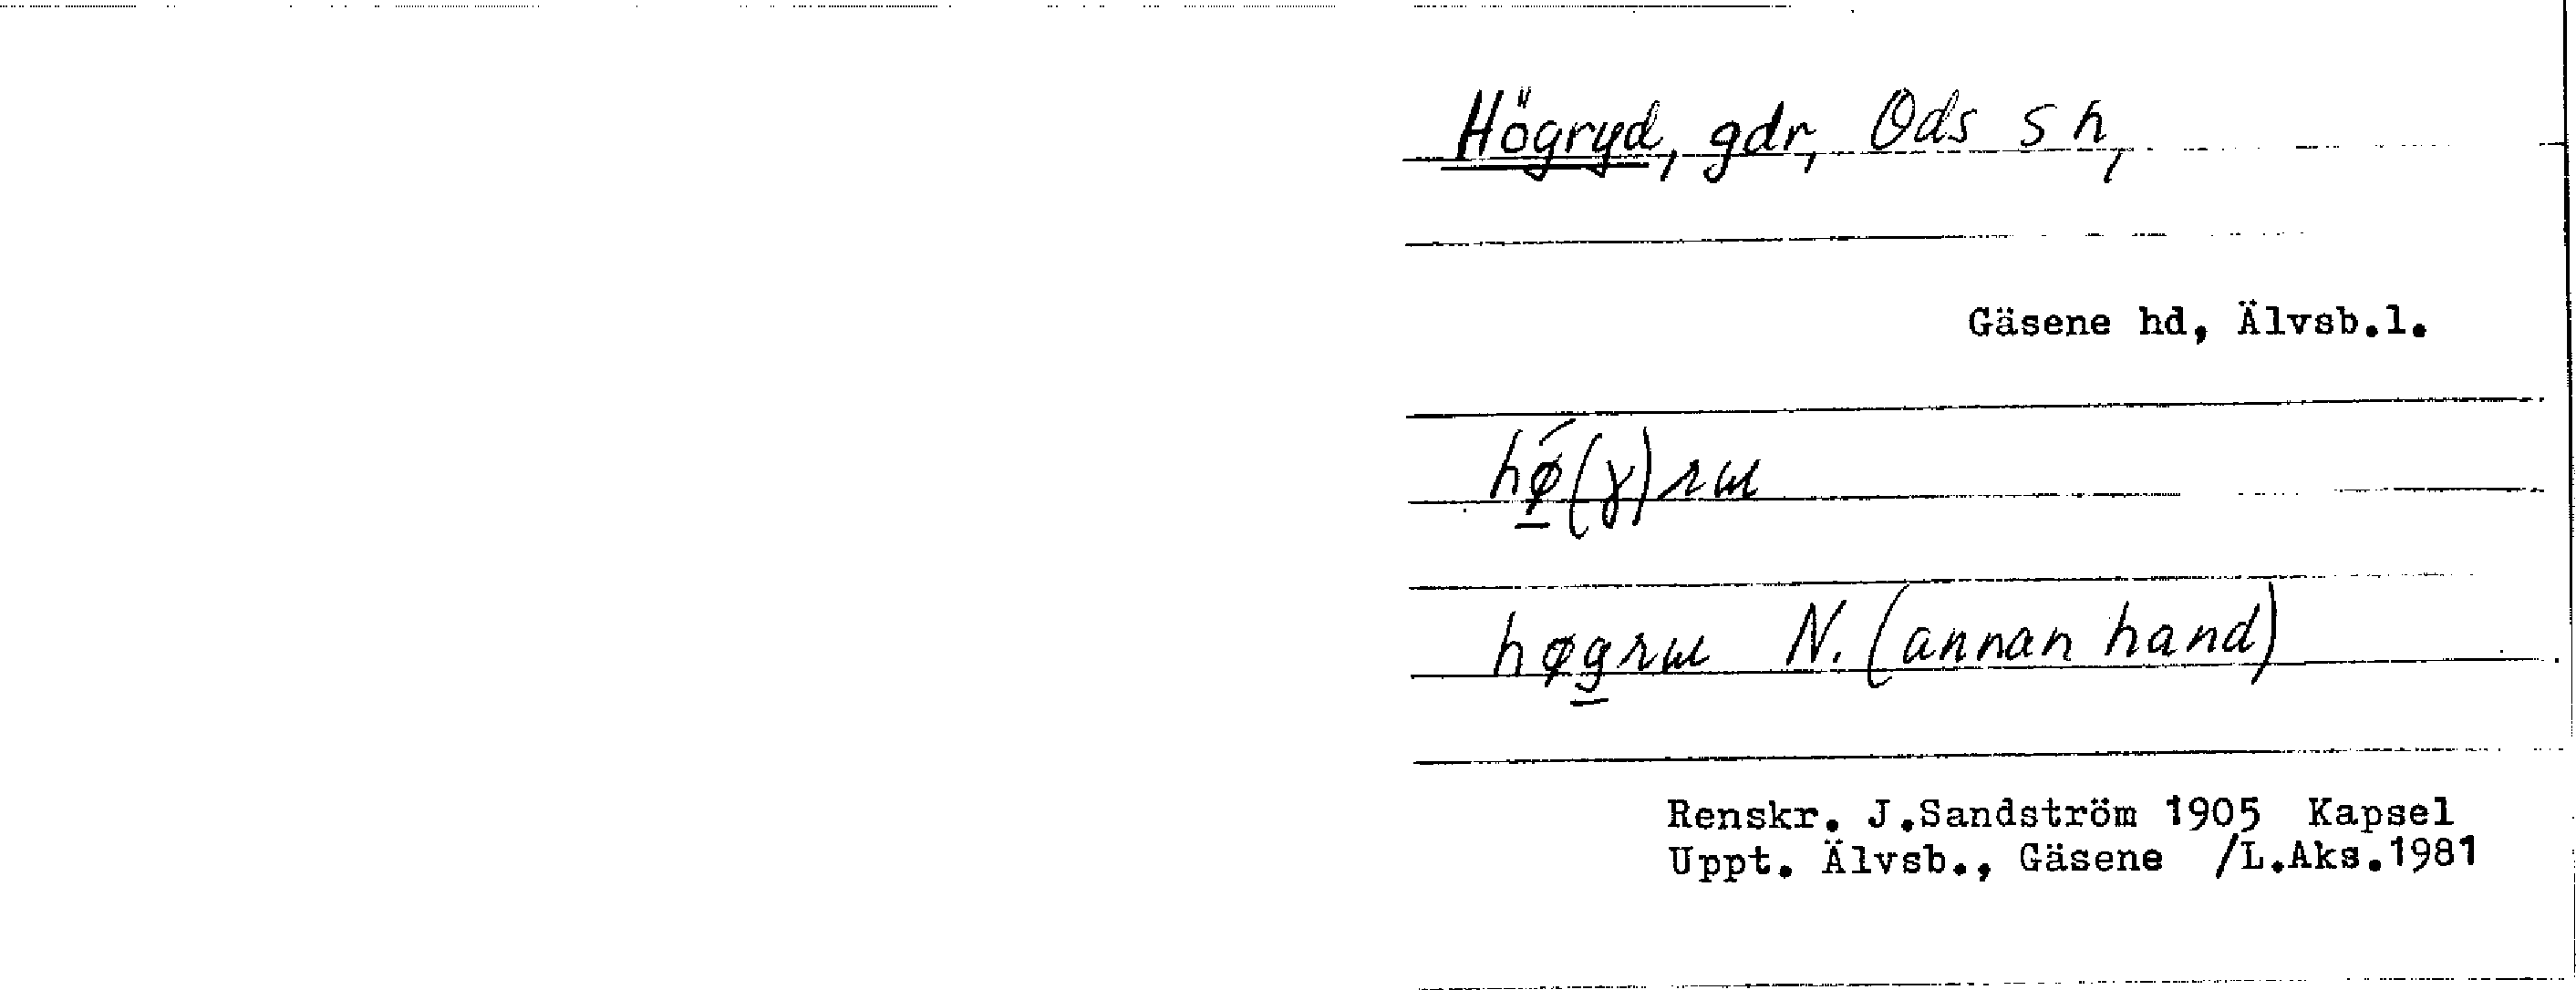 Högryd, gdr, Ods sn,
Gäsene hd, Älvsb.l.
hǿ(ɣ)rɯ
høgrɯ N. (annan hand)
Renskr. J.Sandström 1905 Kapsel
Uppt. Älvsb., Gäsene /L.Aks.1981